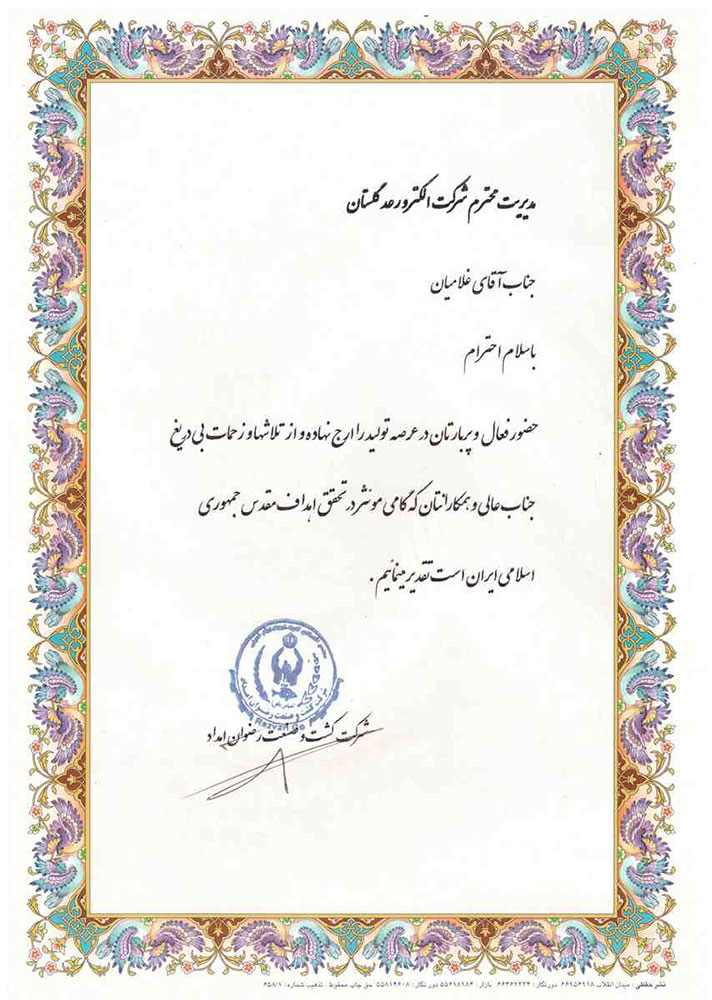 مدیریت محترم شرکت الکترو رعد گلستان
جناب آقای غلامیان
باسلام احترام
حضور فعال و پربارتان در عرصه تولید را ارج نهاده و از تلاشها و زحمات بی دریغ
جناب عالی و همکارانتان که گامی موثر در تحقق اهداف مقدس جمهوری
اسلامی ایران است تقدیر مینمائیم .
شرکت کشت و صنعت رضوان امداد
نشر حقللی : میدان انقلاب ۶۶۹۵۶۹۱۸ دورنگار : ۶۶۴۶۷۲۲۴ بازار : ۵۵۶۹۸۹۸۴ دورنگار : ۵۵۸۱۴۶۰۸ حق چاپ محفوظ . تذهیب شماره : ۶۵۸/۱